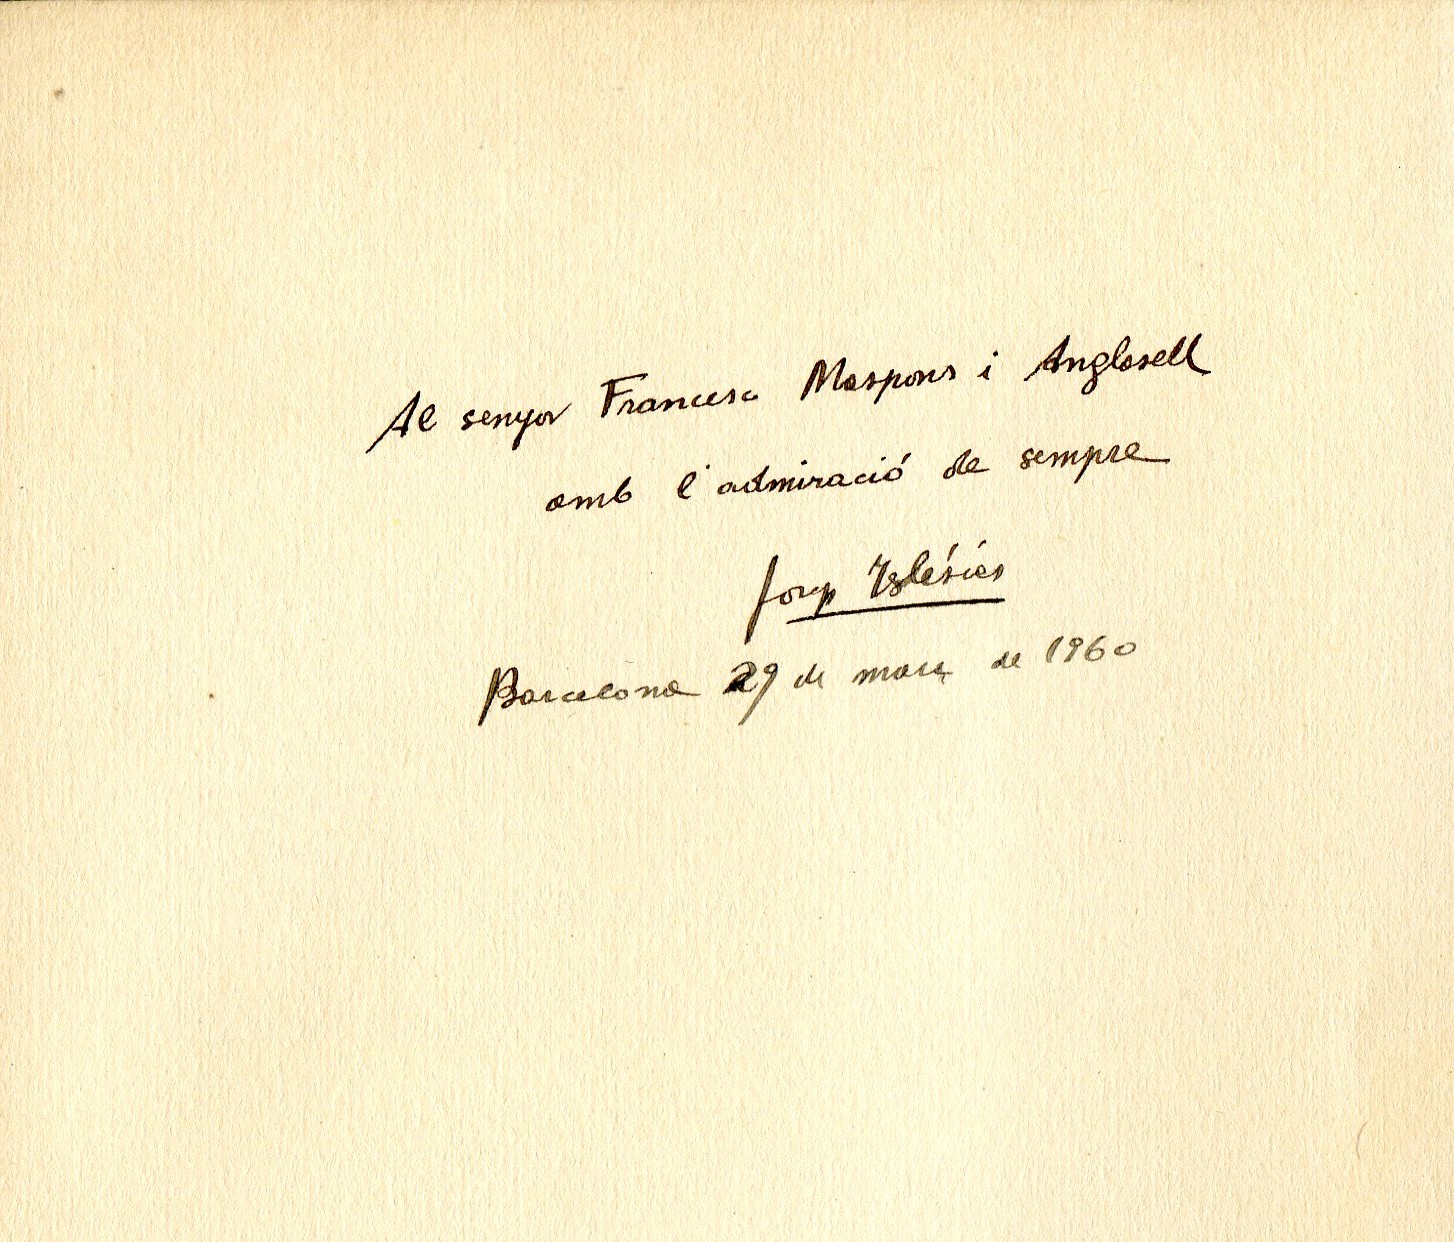 Al senyor Francesc Maspons i Anglasell
amb l'admiració de sempre
Josep Iglésies
Barcelona 29 de març de 1960